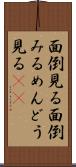 面倒見る面倒
みるめんどう
見る